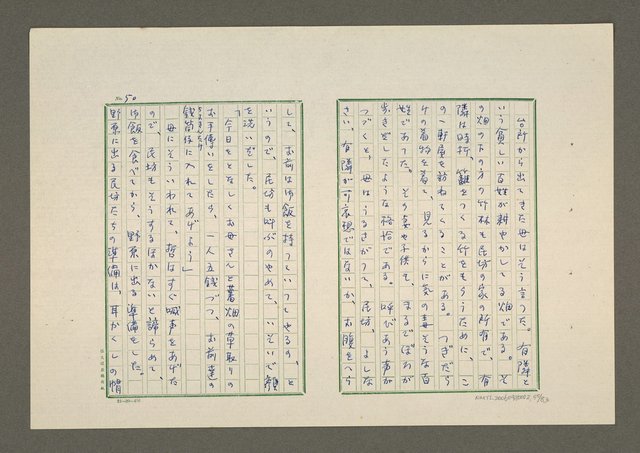 台所から出てきた母はそう言つた。有隣と
いう貧しい百姓が耕やかしてる畑である。そ
の畑の下の方の竹林も民坊の家の所有で、有
隣は時折、籠をつくる竹をもらうために、こ
の一軒屋を訪ねてくることがある。つぎだら
けの着物を着て、見るからに気の毒そうな百
姓であつた。その妻や子供も、まるでぼろが
歩きだしたような格恰である。呼びあう声が
つづくと、母はうるさがつて、民坊、よしな
さい、有隣が可哀想ではないか、お腹をへら
No. 50
して、お前は御飯を持つていつてやるの、と
いうので、民坊も呼ぶのやめて、いそいで顔
を洗いだした。
「今日をとなしくお母さんと蕃畑の草取りの
お手傳いをしたら、一人五銭づつ、お前達の
銭筒に入れてあげよう」
母にそういわれて、哲はすぐ喊声をあげた
ので、民坊もそうするほかないと諦らめて、
御飯を食べてから、野原に出る準備をした。
野原に出る民坊たちの準備は、耳かくしの帽